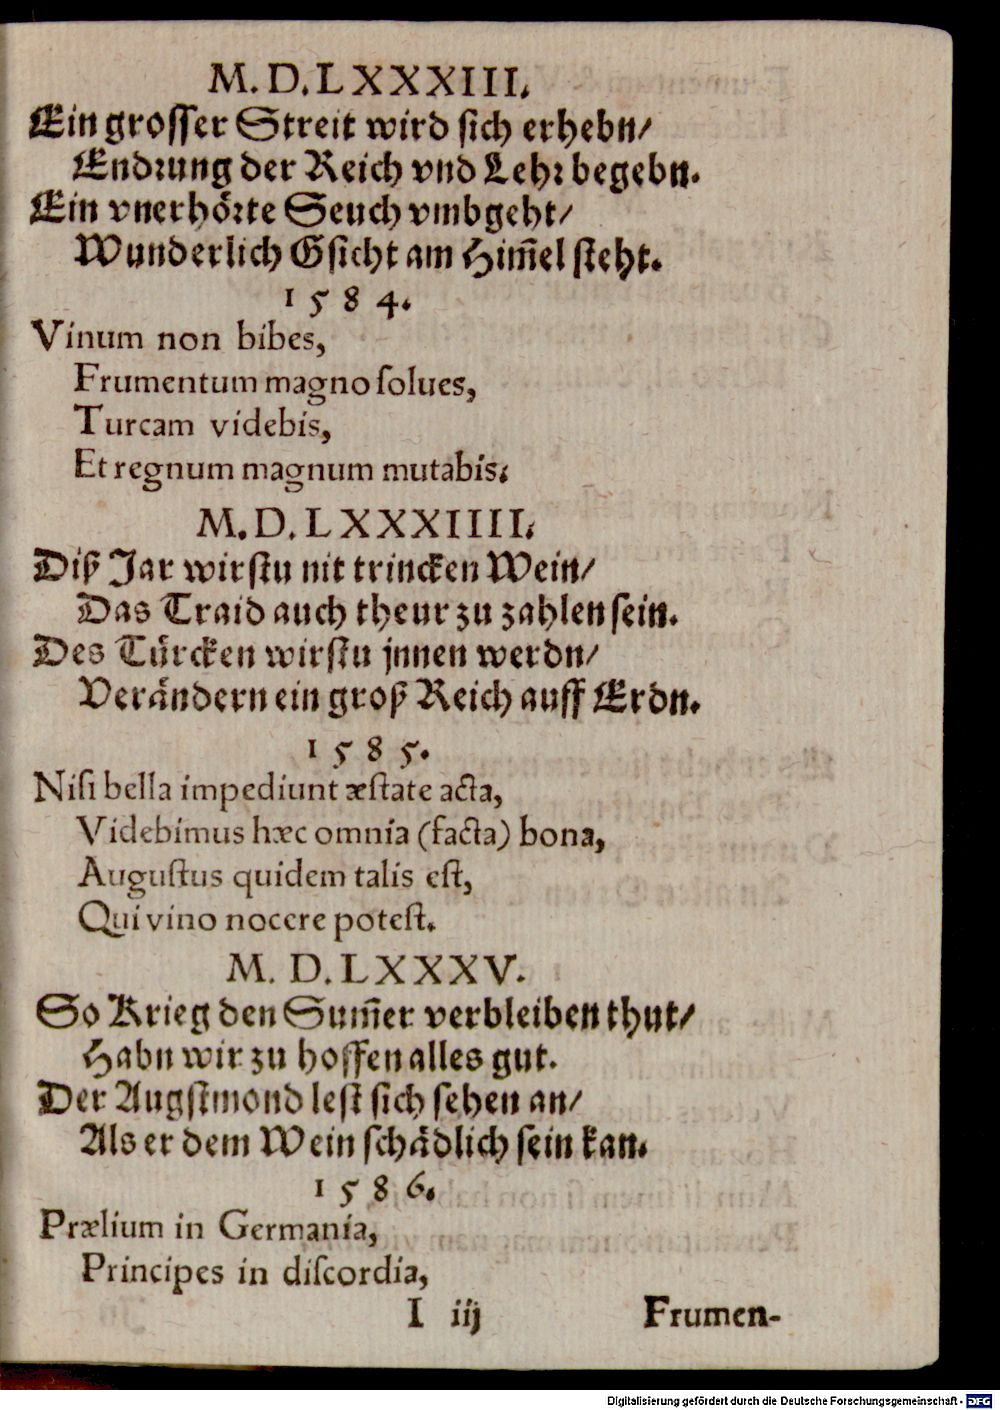 M. D. LXXXIII.
Ein grosser Streit wird sich erhebn/
Endrung der Reich vnd Lehr begebn.
Ein vnerhörte Seuch vmbgeht/
Wunderlich Gsicht am Him̃el steht.
1584.
Vinum non bibes,
Frumentum magno ſolues,
Turcam videbis,
Et regnum magnum mutabis.
M. D. LXXXIIII.
Diß Jar wirstu nit trincken Wein/
Das Traid auch theur zu zahlen sein.
Des Türcken wirstu jnnen werdn/
Verändern ein groß Reich auff Erdn.
1585.
Niſi bella impediunt æſtate acta,
Videbimus hæc omnia (facta) bona,
Auguſtus quidem talis eſt,
Qui vino nocere poteſt.
M. D. LXXXV.
So Krieg den Sum̃er verbleiben thut/
Habn wir zu hoffen alles gut.
Der Augstmond lest sich sehen an/
Als er dem Wein schädlich sein kan.
1586.
Prælium in Germania,
Principes in diſcordia,
I iij Frumen-
Digitalisierung gefördert durch die Deutsche Forschungsgemeinschaft - DFG